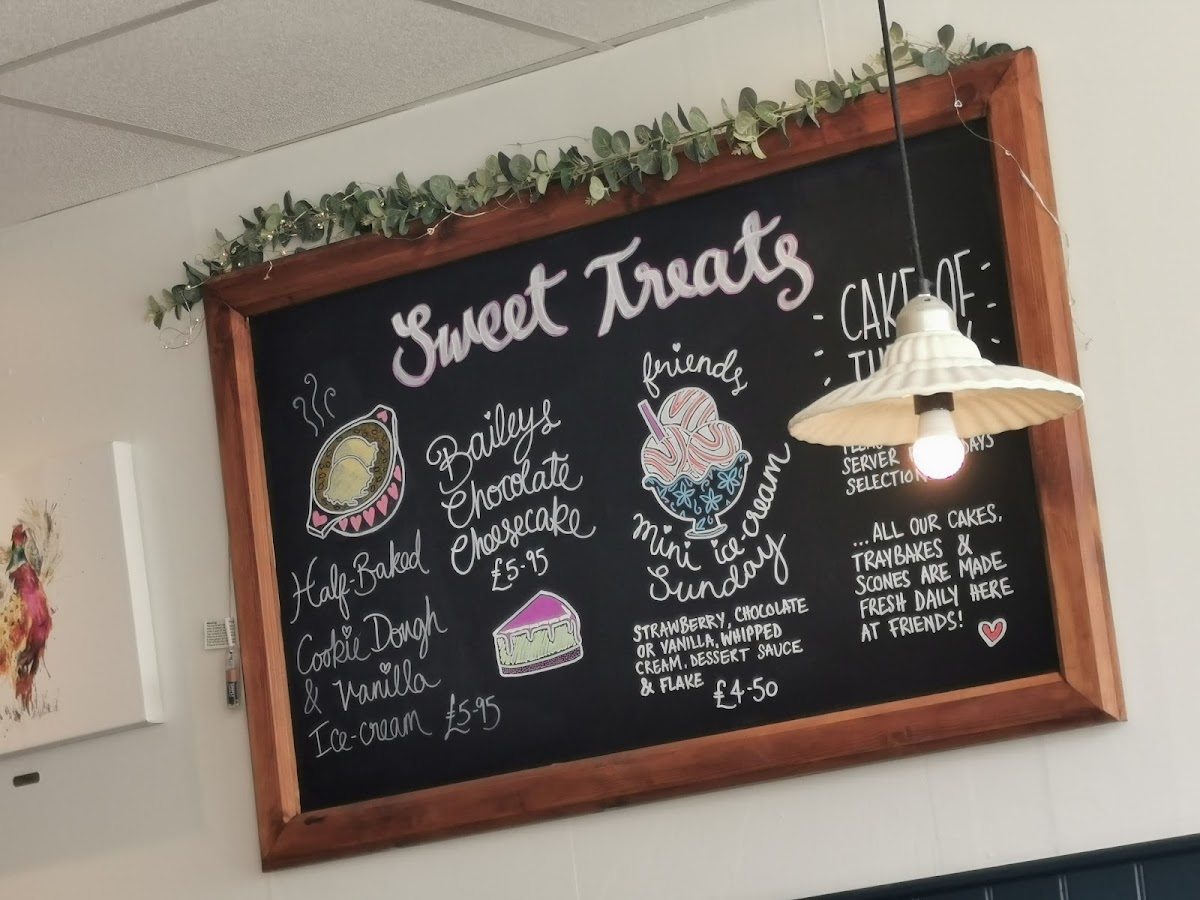 Sweet Treats
Half-Baked
Cookie Dough
& Vanilla
Ice-cream £5-95
Baileys
Chocolate
Cheesecake
£5-95
friends
mini ice-cream
Sunday
STRAWBERRY, CHOCOLATE
OR VANILLA, WHIPPED
CREAM, DESSERT SAUCE
& FLAKE £4-50
CAKE OF
SERVER
SELECTION
...ALL OUR CAKES,
TRAYBAKES &
SCONES ARE MADE
FRESH DAILY HERE
AT FRIENDS!